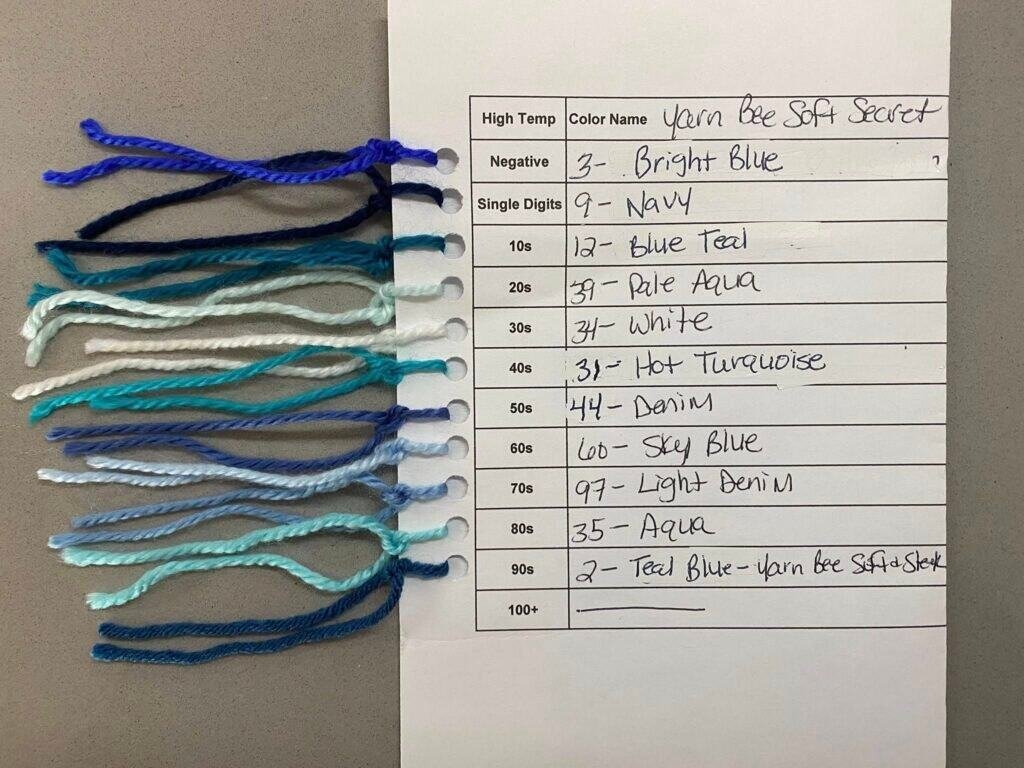 High Temp Color Name Yarn Bee Soft Secret
Negative 3- Bright Blue
Single Digits 9- Navy
10s 12- Blue Teal
20s 39- Pale Aqua
30s 34- White
40s 31- Hot Turquoise
50s 44- Denim
60s 60- Sky Blue
70s 97- Light Denim
80s 35- Aqua
90s 2- Teal Blue- Yarn Bee Soft & Sleek
100+